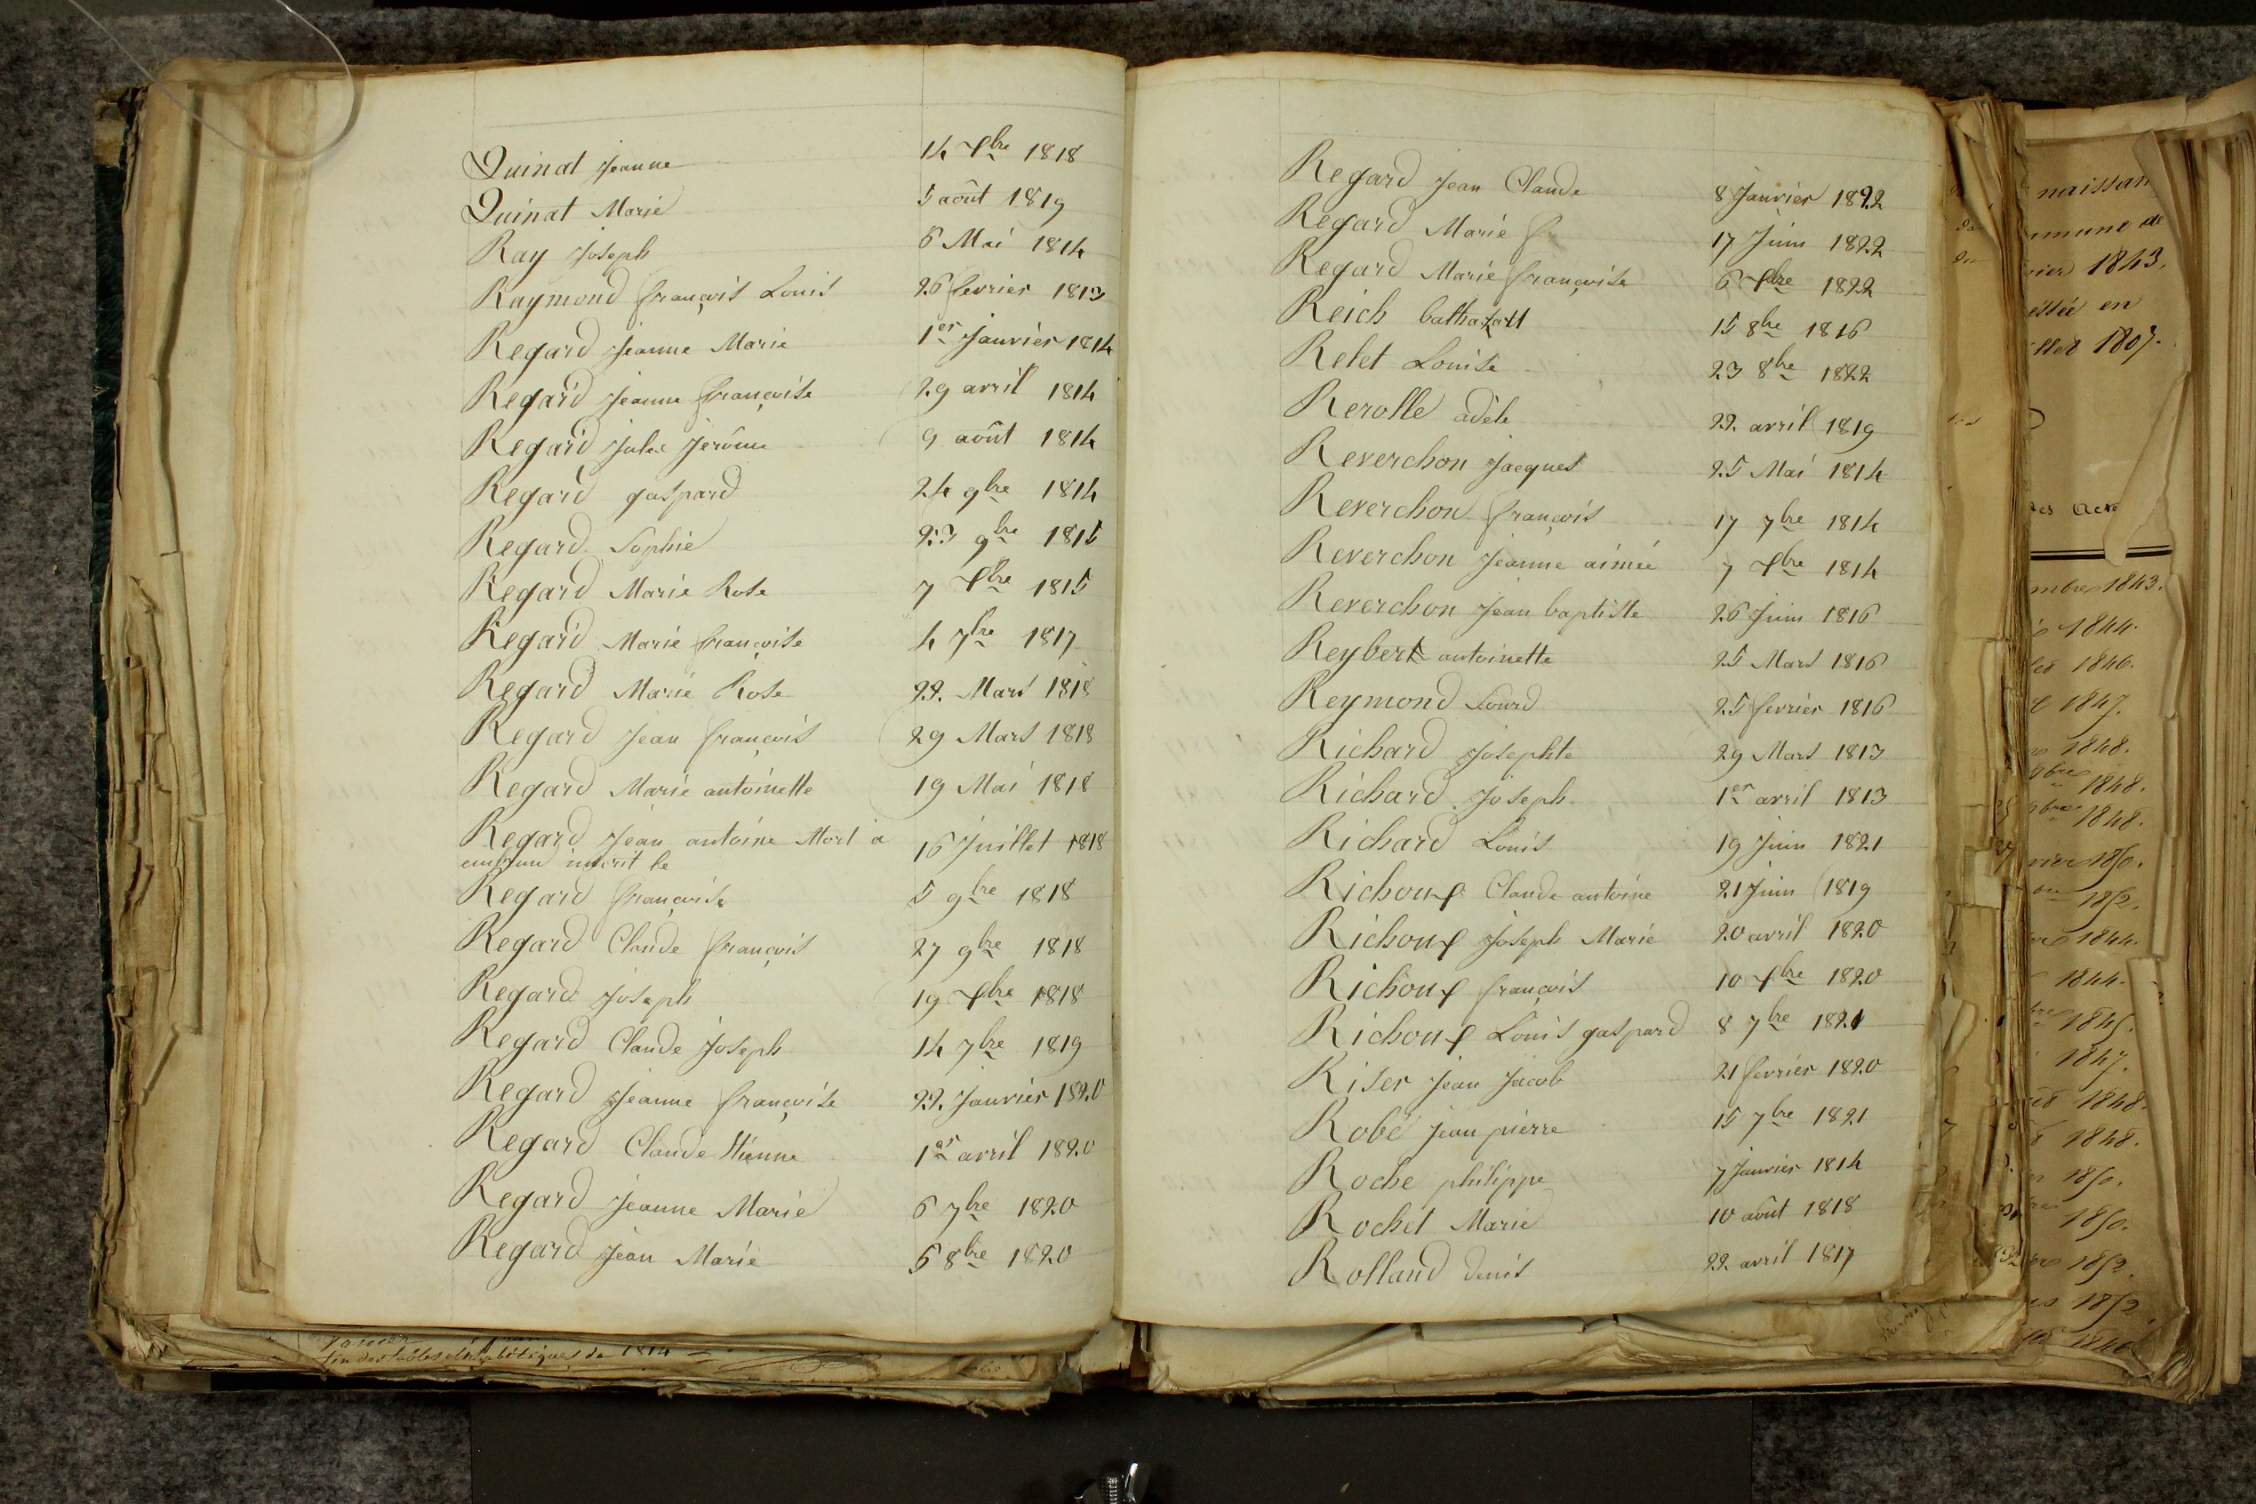 Quinat Jeanne 14 Xbre 1818
Quinat Marie 5 août 1819
Ray Joseph 6 Mai 1814
Raymond françois Louis 26 fevrier 1813
Regard Jeanne Marie 1er Janvier 1814
Regard Jeanne françoise 29 avril 1814
Regard Jules Jerôme 9 août 1814
Regard gaspard 24 9bre 1814
Regard Sophie 23 9bre 1815
Regard Marie Rose 7 Xbre 1815
Regard Marie françoise 4 7bre 1817
Regard Marie Rose 22 Mars 1818
Regard Jean françois 29 Mars 1818
Regard Marie antoinette 19 Mai 1818
Regard Jean antoine Mort à
embrun inscrit le 16 Juillet 1818
Regard françoise 5 9bre 1818
Regard Claude françois 27 9bre 1818
Regard Joseph 19 Xbre 1818
Regard Claude Joseph 14 7bre 1819
Regard Jeanne françoise 22 Janvier 1820
Regard Claude Etienne 1er avril 1820
Regard Jeanne Marie 6 7bre 1820
Regard Jean Marie 5 8bre 1820
fin des tables alphabétiques de 1814
Regard Jean Claude 8 Janvier 1822
Regard Marie fse 17 Juin 1822
Regard Marie françoise 6 Xbre 1822
Reich balthazatt 15 8bre 1816
Relet Louise 23 8bre 1822
Rerolle adèle 22 avril 1819
Reverchon Jacques 25 Mai 1814
Reverchon françois 17 7bre 1814
Reverchon Jeanne aimée 7 Xbre 1814
Reverchon Jean baptiste 26 Juin 1816
Reybert antoinette 25 Mars 1816
Reymond Sourd 25 fevrier 1816
Richard Josephte 29 Mars 1813
Richard Joseph 1er avril 1813
Richard Louis 19 Juin 1821
Richoux Claude antoine 21 Juin 1819
Richoux Joseph Marie 20 avril 1820
Richoux françois 10 Xbre 1820
Richoux Louis gaspard 8 7bre 1821
Riser Jean Jacob 21 fevrier 1820
Robé Jean pierre 15 7bre 1821
Roche philippe 7 Janvier 1814
Rochet Marie 10 août 1818
Rolland denis 22 avril 1817
1843.
en
1807.
1843.
1844.
1846.
1847.
1848.
9bre 1848.
1848.
1844.
1844.
1845.
1847.
1848.
1848.